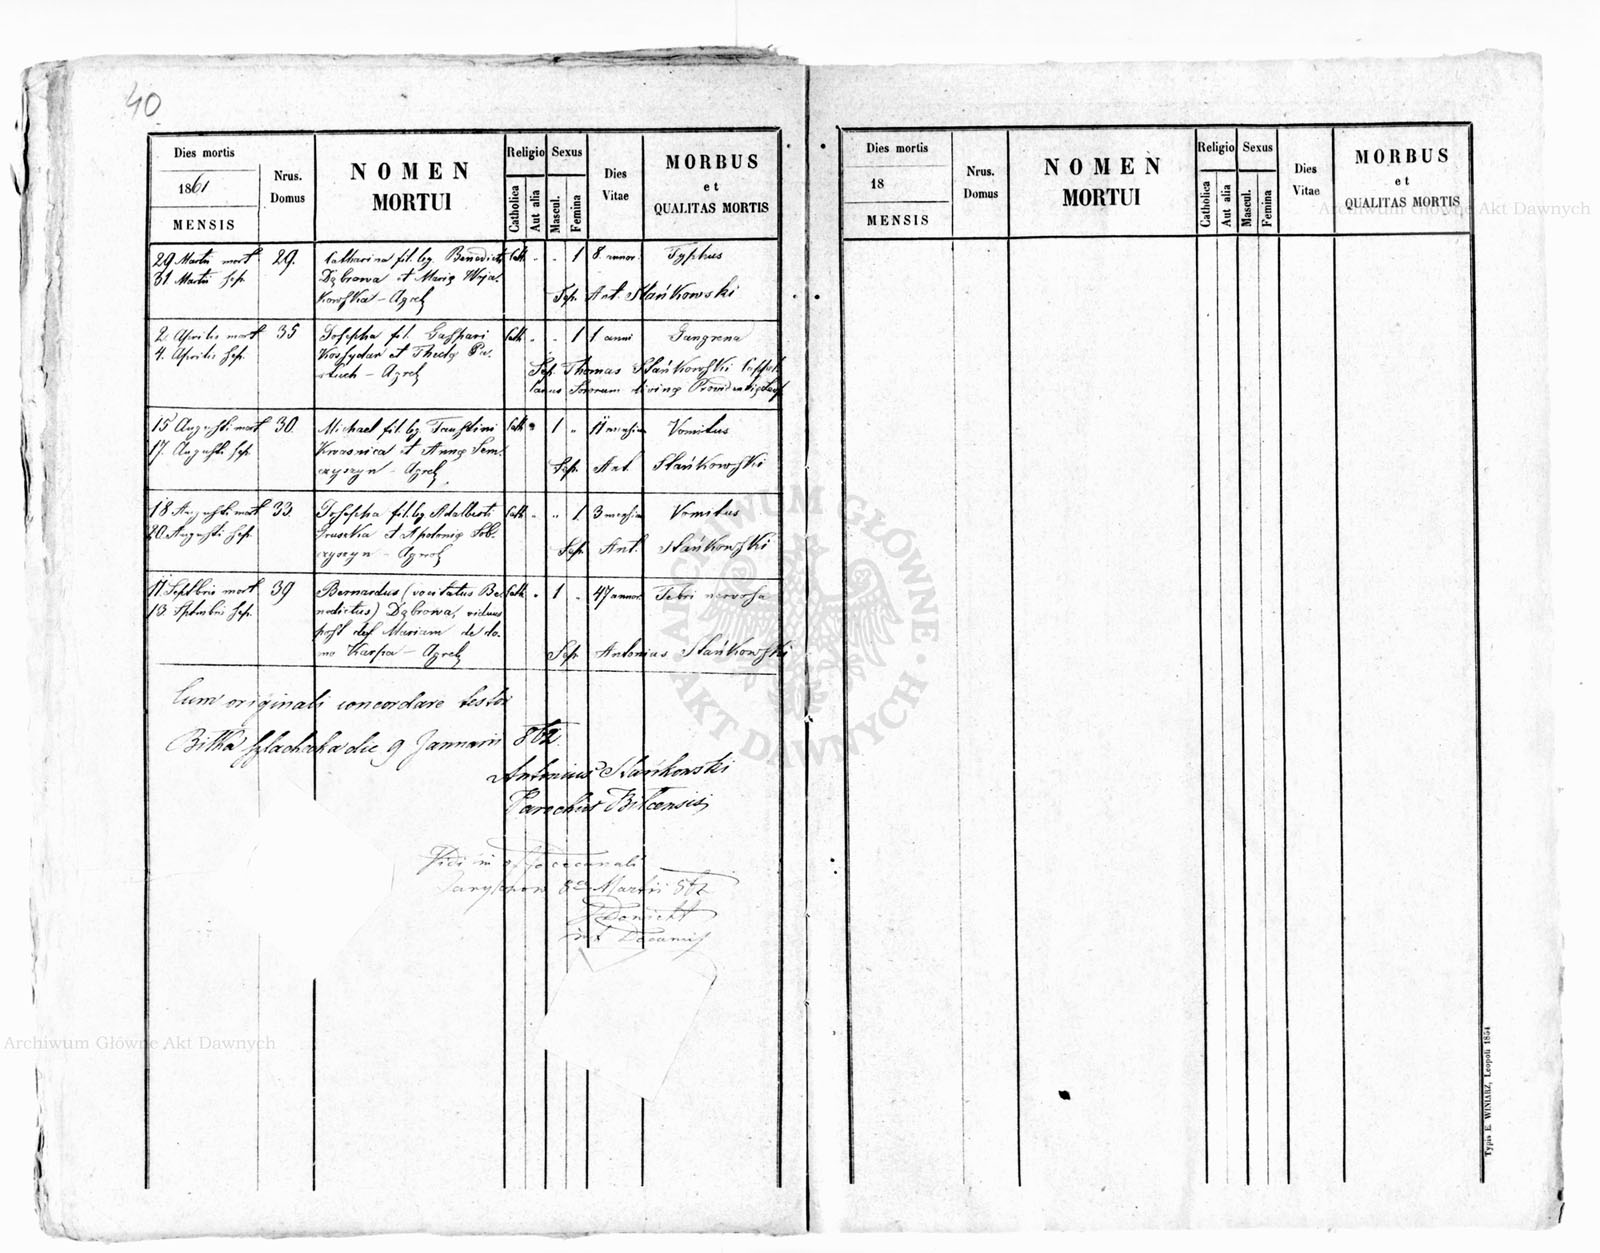 40.
Dies mortis
1861
MENSIS
Nrus.
Domus
NOMEN
MORTUI
Religio
Catholica
Aut alia
Sexus
Mascul.
Femina
Dies
Vitae
MORBUS
et
QUALITAS MORTIS
29 Martii mort 29. Katharina fil. leg. Benedicti Cath. " " 1 8 annor Typhus
31 Martii sep. Dąbrowa et Maria
Agrel Sep. Ant. Stańkowski
2. Aprilis mort 35 Josepha fil. Gaspari Cath " " 1 1 anni Gangrena
4. Aprilis sep. et Theclą Pa-
stuch - Agrel Sep. Thomas Stańkowski
Sororum divinę
15 Augusti mort 30. Michael fil. leg. Faustini Cath " 1 " 11 mensium Vomitus
17. Augusti sep. Krasnica et Anną Sem-
czyszyn - Agrel Sep. Ant. Stańkowski
18 Augusti mort 33. Josepha fil. leg Adalberti Cath " " 1. 3 mensium Vomitus
20. Augusti sep. Gruszka et Apolonią Sob-
czyszyn - Agrel Sep. Ant. Stańkowski
11. Septbris mort. 39 Bernardus (vocitatus Be- Cath " 1 " 47 annor. Febri nervosa
13. Septembris sep. nedictus) Dąbrowa, viduus
post def Mariam de do-
mo Karpa - Agrel Sep Antonius Stańkowski
Cum originali concordare testor
Bitka szlachecka die 9 Januarii 862
Antonius Stańkowski
Parochus Bilcensis
Vidi in
8va Martii 862
Dies mortis
18
MENSIS
Nrus.
Domus
NOMEN
MORTUI
Religio
Catholica
Aut alia
Sexus
Mascul.
Femina
Dies
Vitae
MORBUS
et
QUALITAS MORTIS
Typis E. WINIARZ, Leopoli 1854
Archiwum Główne Akt Dawnych
Archiwum Główne Akt Dawnych
ARCHIWUM GŁÓWNE · AKT DAWNYCH ·